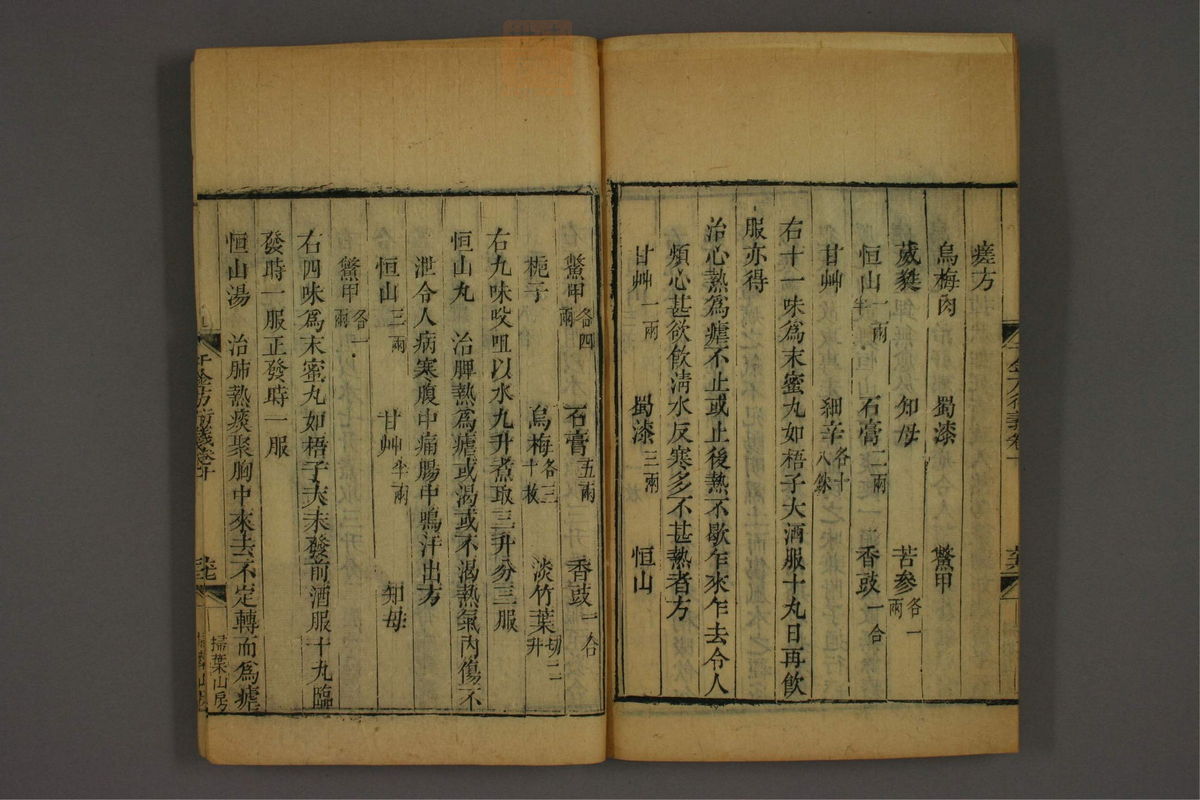 瘧方
烏梅肉 蜀漆 鱉甲
葳蕤 知母 苦參各一兩
恒山一兩半 石膏二兩 香豉一合
甘艸 細辛各十八銖
右十一味爲末蜜丸如梧子大酒服十丸日再飲
服亦得
治心熱爲瘧不止或止後熱不歇乍來乍去令人
煩心甚欲飲清水反寒多不甚熱者方
甘艸一兩 蜀漆三兩 恒山
鱉甲各四兩 石膏五兩 香豉一合
梔子 烏梅各三十枚 淡竹葉切二升
右九味㕮咀以水九升煮取三升分三服
恒山丸 治脾熱爲瘧或渴或不渴熱氣内傷不
泄令人病寒腹中痛腸中鳴汗出方
恒山三兩 甘艸半兩 知母
鱉甲各一兩
右四味爲末蜜丸如梧子大未發前酒服十丸臨
發時一服正發時一服
恒山湯 治肺熱痰聚胸中來去不定轉而爲瘧
千金方衍義卷十
掃葉山房